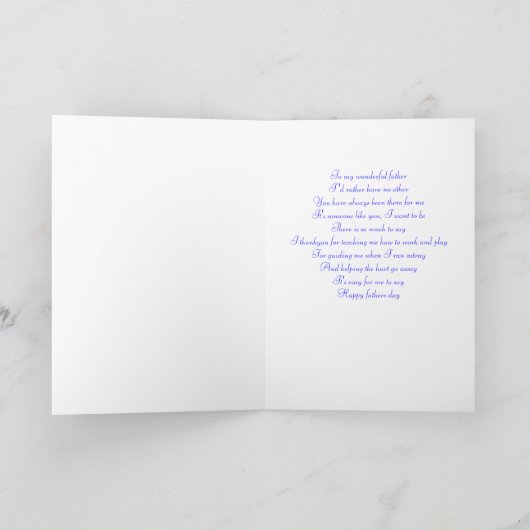 To my wonderful father
I'd rather have no other
You have always been there for me
It's someone like you, I want to be
There is so much to say
I thankyou for teaching me how to work and play
For guiding me when I ran astray
And helping the hurt go away
It's easy for me to say
Happy fathers day